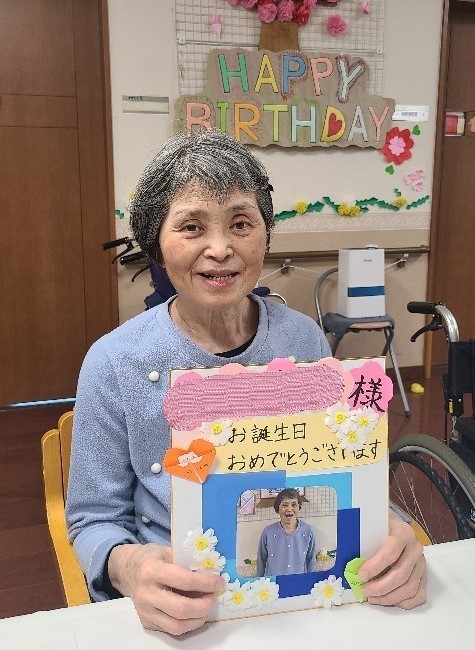 HAPPY
BIRTHDAY
様
お誕生日
おめでとうございます